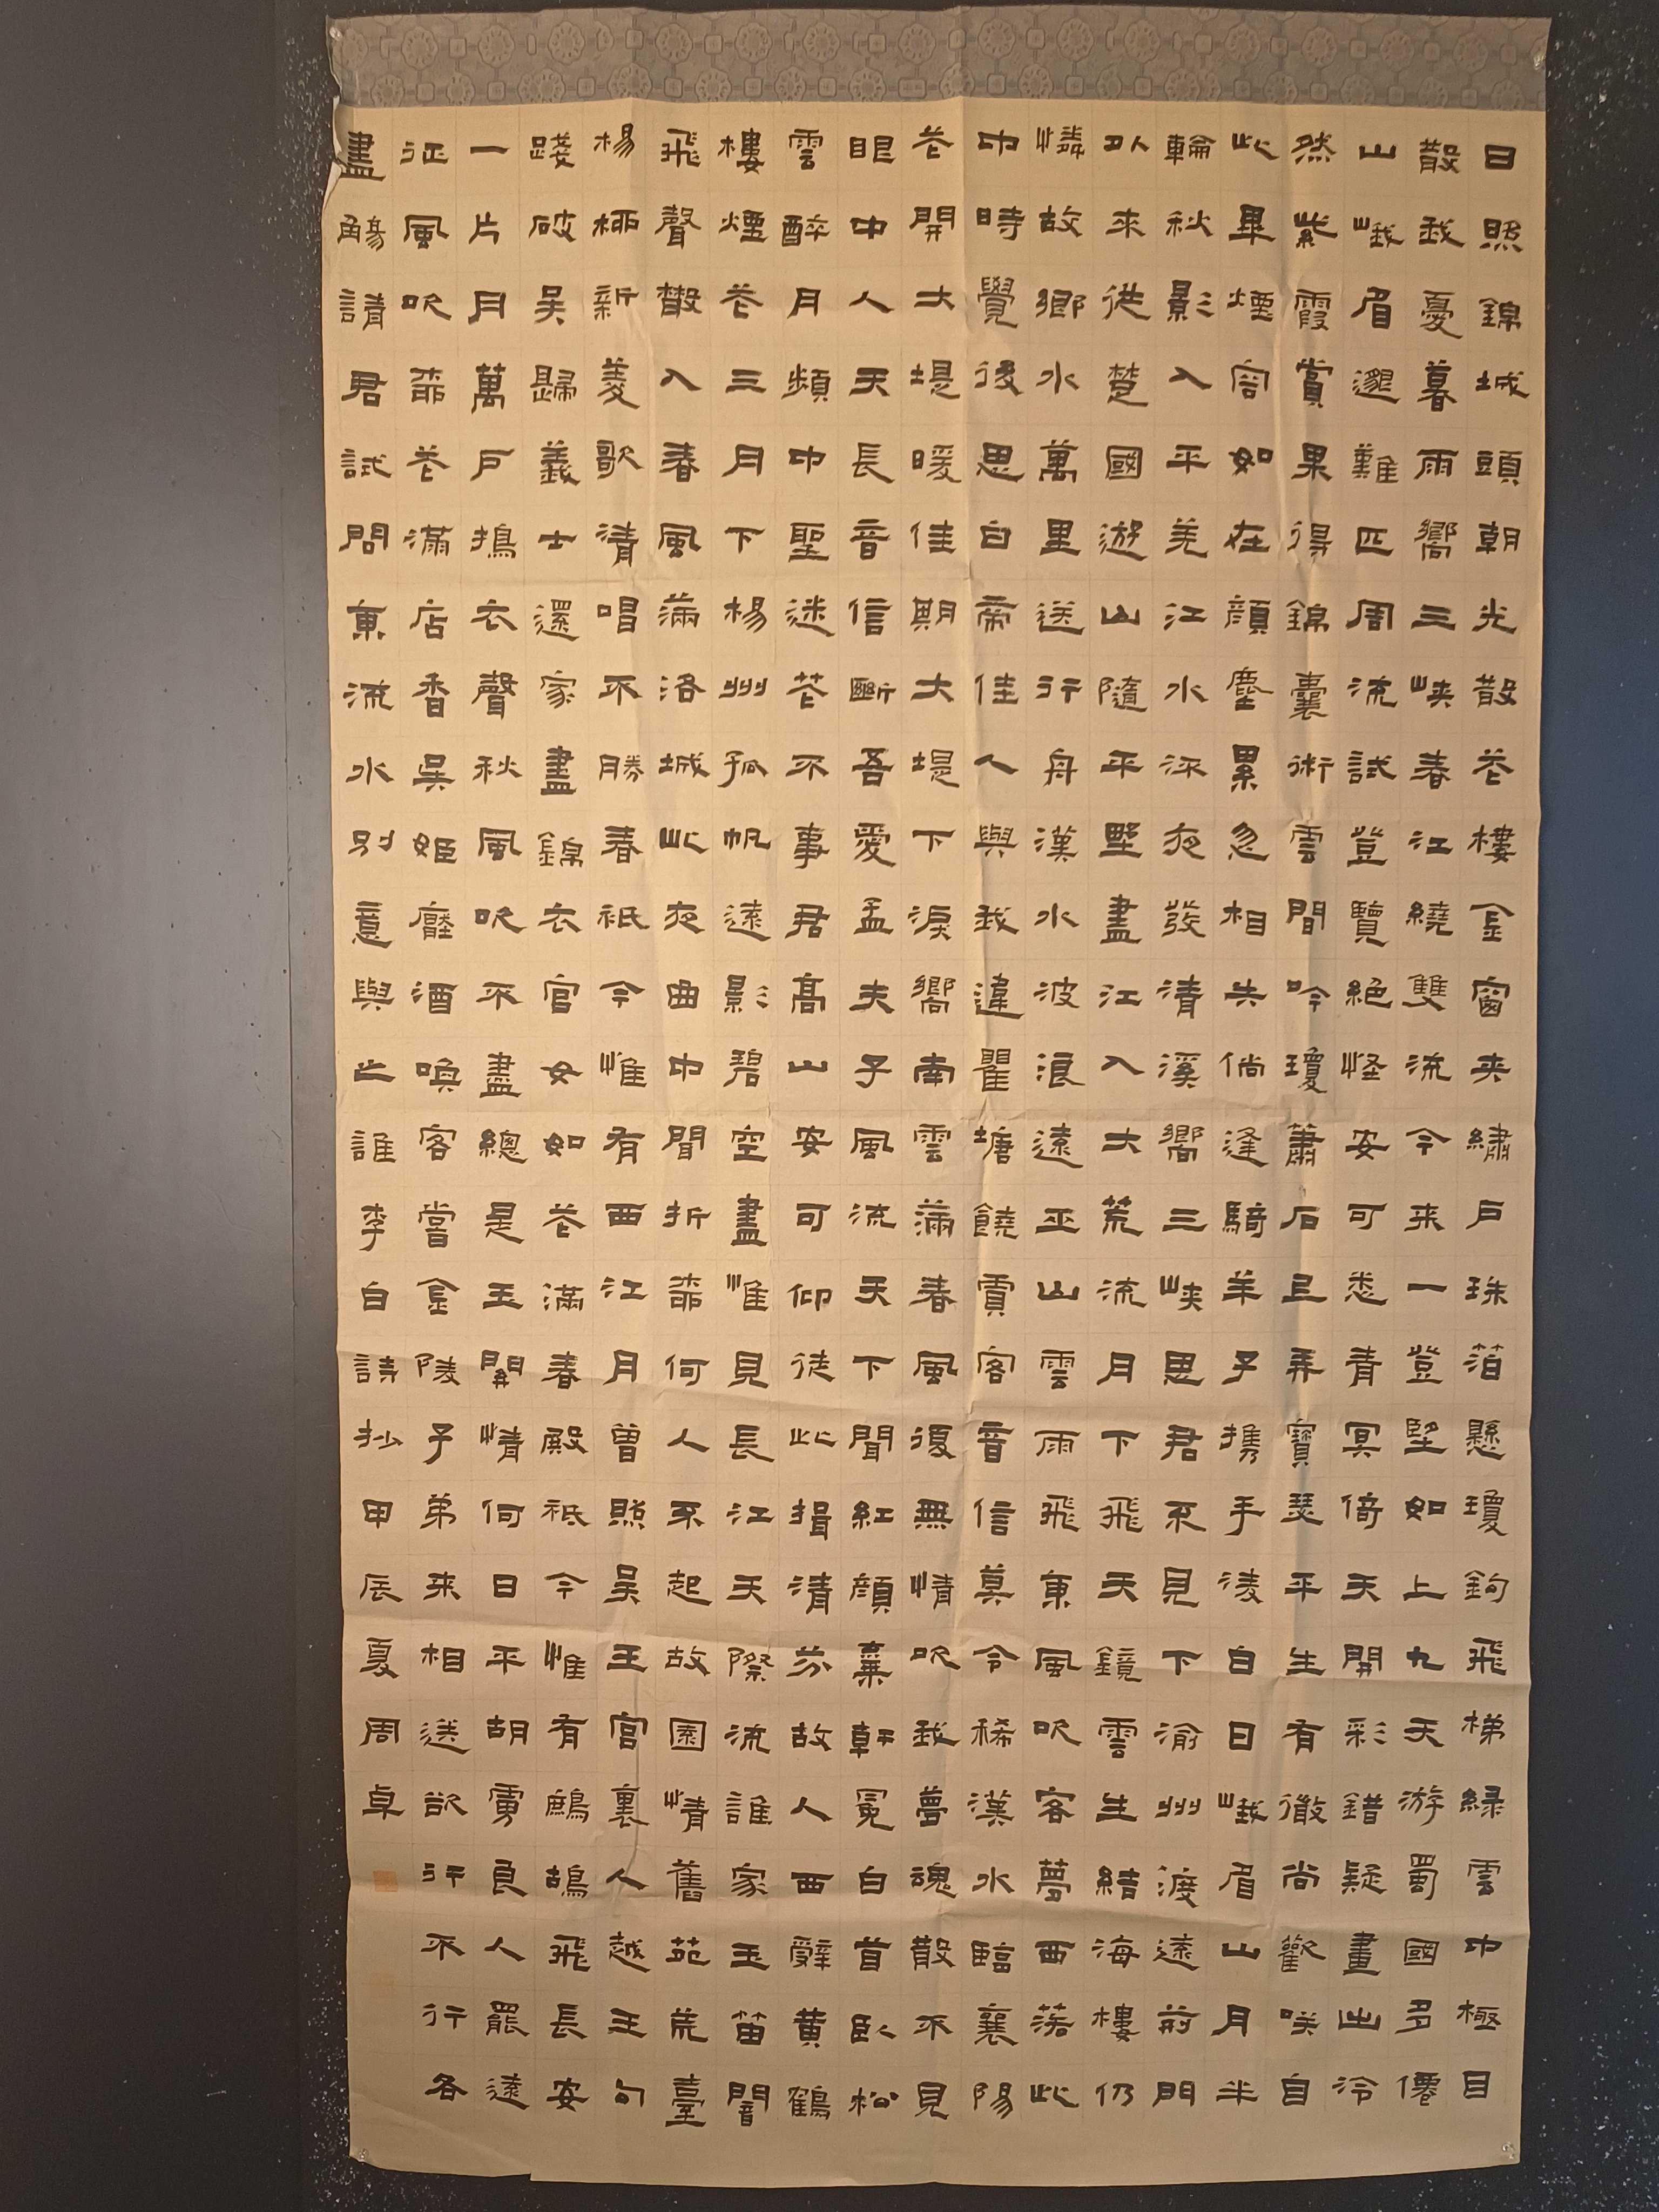 日照錦城頭朝光散花樓金窗夾繡戶珠箔懸瓊鉤飛梯綠雲中極目
散我憂暮雨嚮三峽春江繞雙流今来一登望如上九天游蜀國多僊
山峨眉邈難匹周流試登覽絕怪安可悉青冥倚天開彩錯疑畫出泠
然紫霞賞果得錦囊術雲間吟瓊簫石上弄寶瑟平生有微尚歡笑自
此畢煙容如在顏塵累忽相失倘逢騎羊子攜手淩白日峨眉山月半
輪秋影入平羌江水流夜發清溪嚮三峽思君不見下渝州渡遠荊門
外來從楚國遊山隨平野盡江入大荒流月下飛天鏡雲生結海樓仍
憐故鄉水萬里送行舟漢水波浪遠巫山雲雨飛東風吹客夢西落此
中時覺後思白帝佳人與我違瞿塘饒賈客音信莫令稀漢水臨襄陽
花開大堤暖佳期大堤下淚嚮南雲滿春風復無情吹我夢魂散不見
眼中人天長音信斷吾愛孟夫子風流天下聞紅顏棄軒冕白首臥松
雲醉月頻中聖迷花不事君高山安可仰徒此揖清芬故人西辭黃鶴
樓煙花三月下楊州孤帆遠影碧空盡惟見長江天際流誰家玉笛闇
飛聲散入春風滿洛城此夜曲中聞折柳何人不起故園情舊苑荒臺
楊柳新菱歌清唱不勝春祇今惟有西江月曾照吳王宮裏人越王句
踐破吳歸義士還家盡錦衣宮女如花滿春殿祇今惟有鷓鴣飛長安
一片月萬戶搗衣聲秋風吹不盡總是玉關情何日平胡虜良人罷遠
征風吹柳花滿店香吳姬壓酒喚客嘗金陵子弟来相送欲行不行各
盡觴請君試問東流水別意與之誰李白詩抄甲辰夏周卓